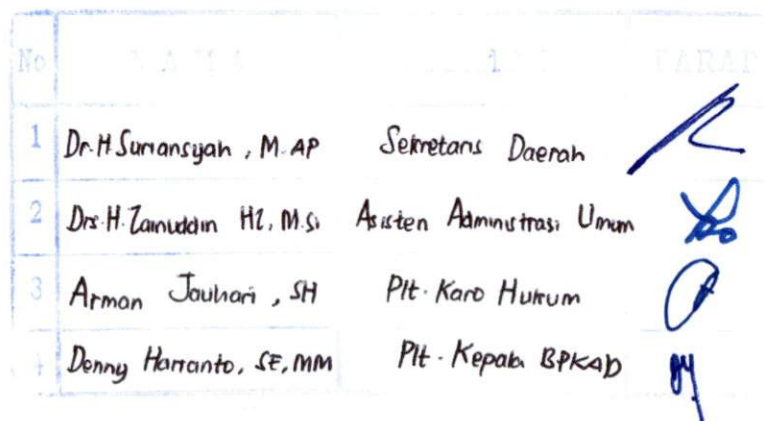 No N A M A PARAF
1 Dr. H Suriansyah, M. AP Sekretaris Daerah
2 Drs. H. Zainuddin HZ, M.Si Asisten Administrasi Umum
3 Arman Jauhari, SH Plt. Karo Hukum
4 Denny Harianto, SE, MM Plt. Kepala BPKAD